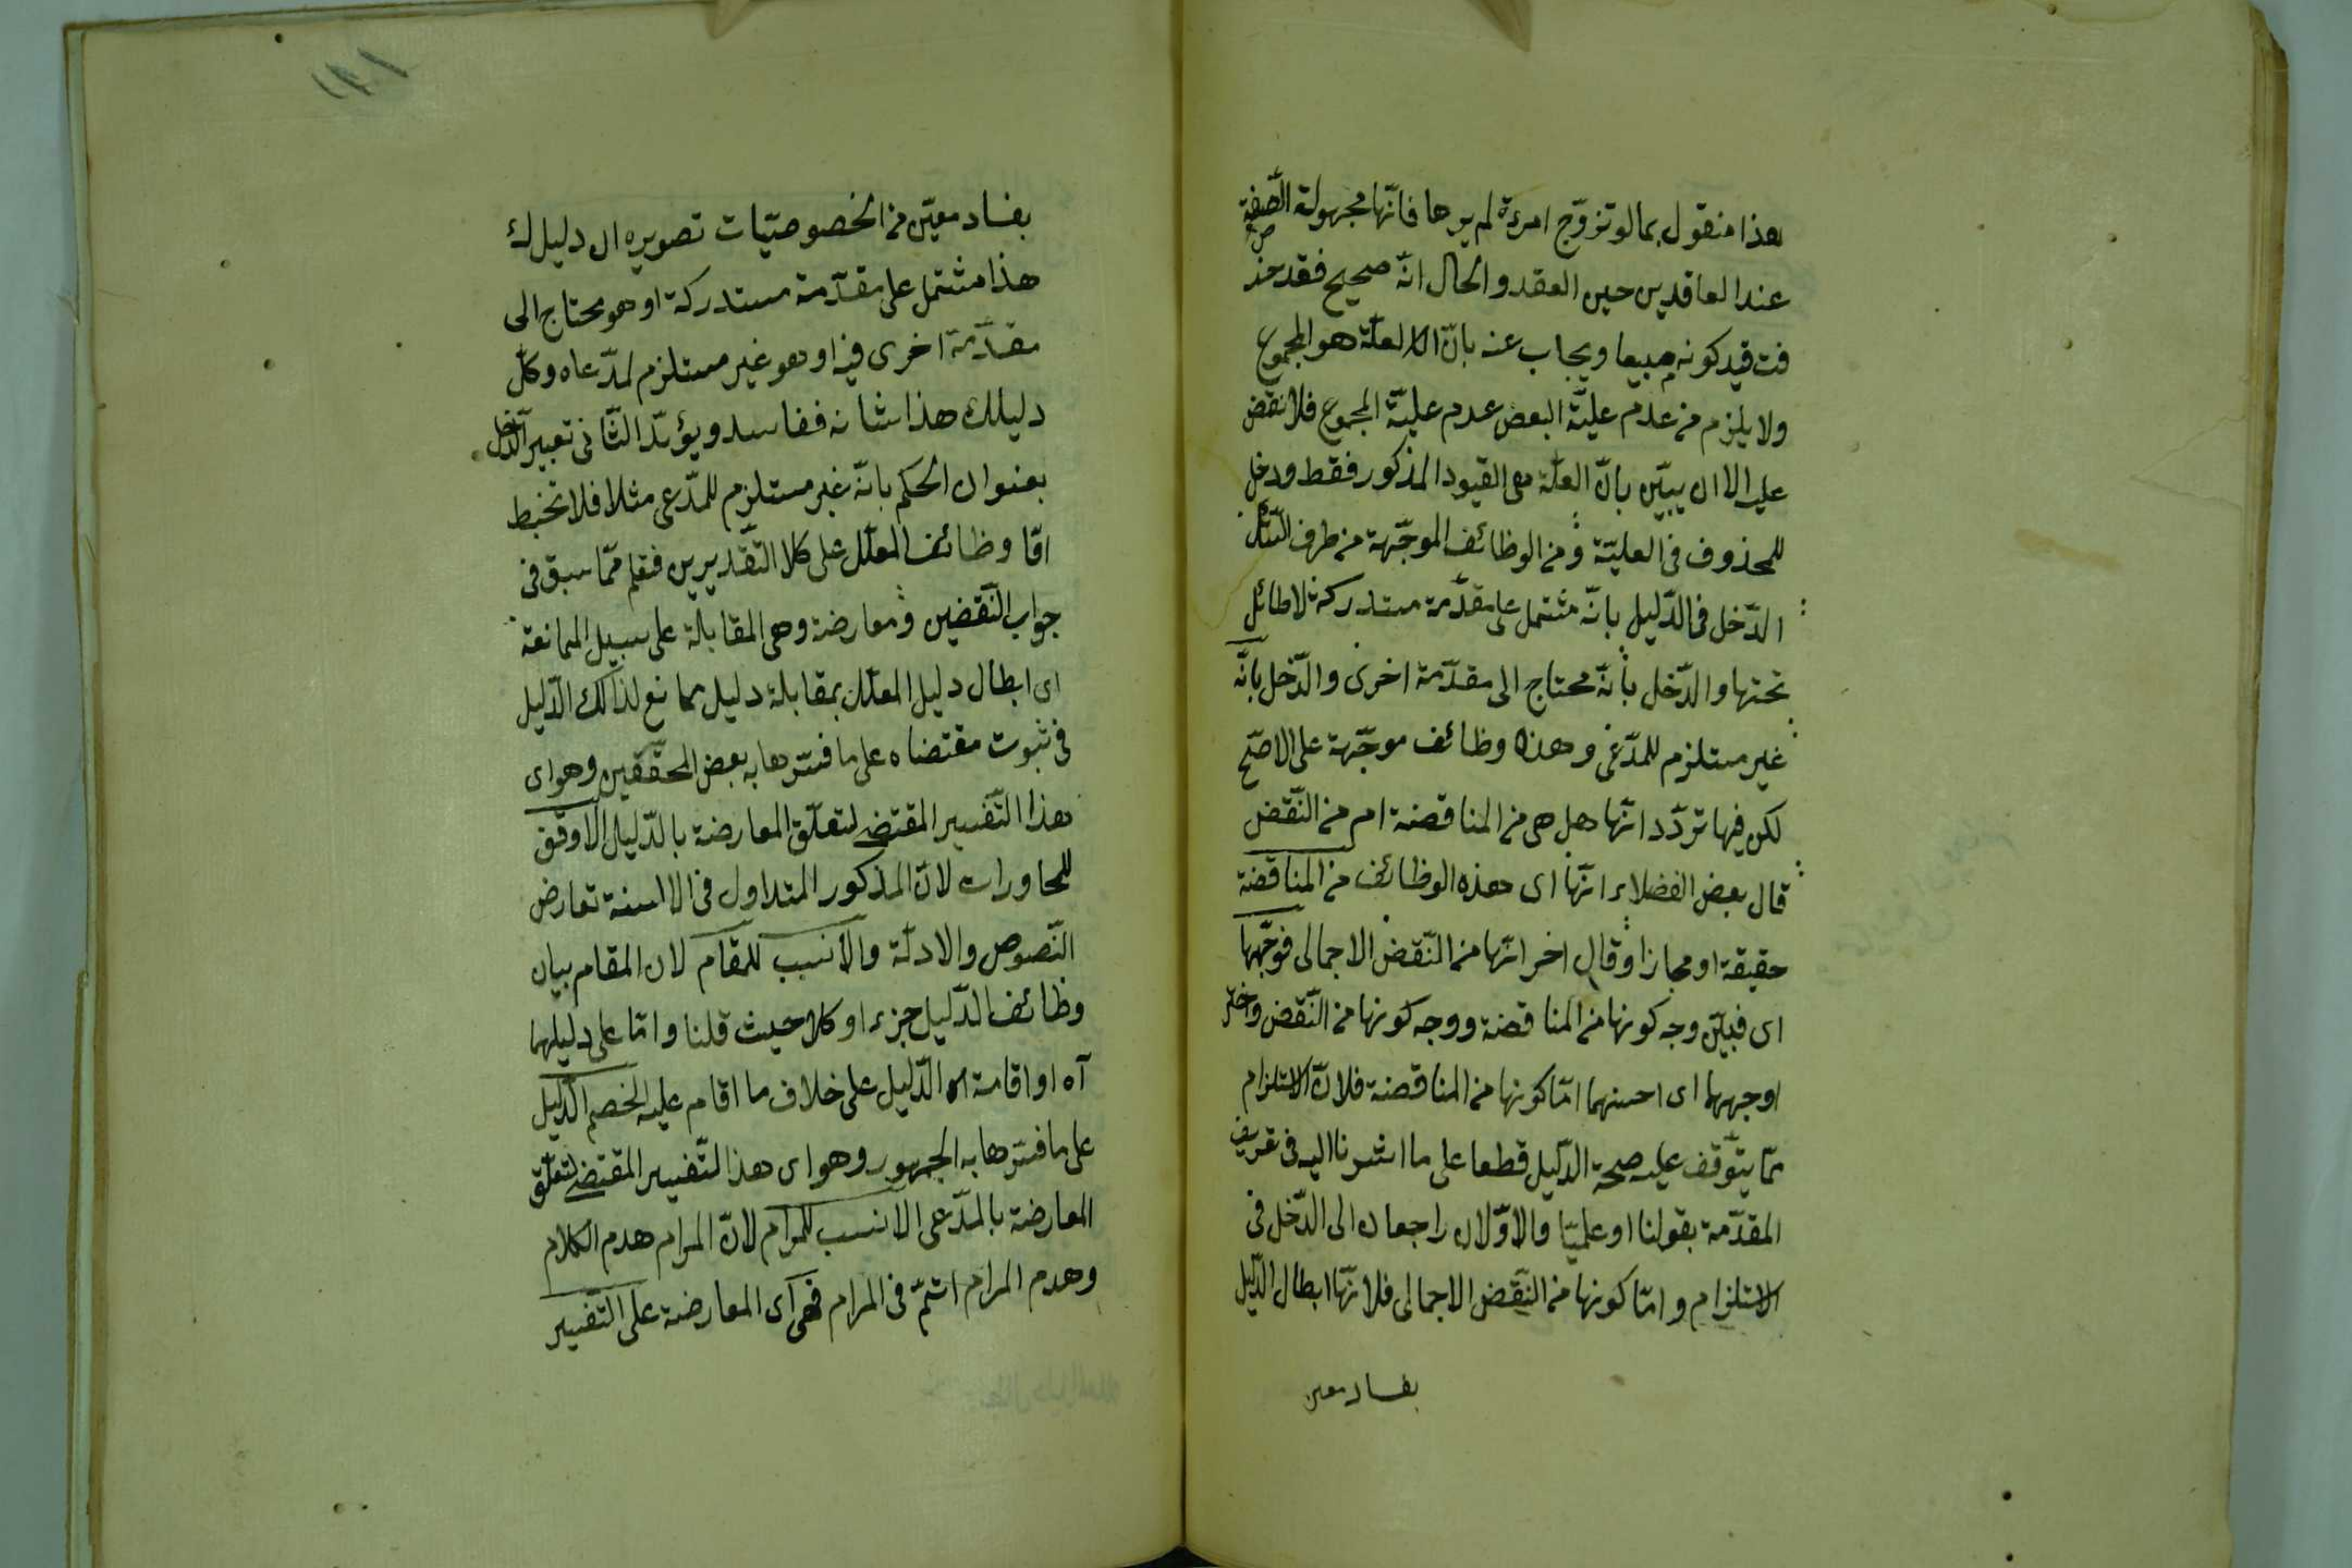 هذا منقول بما لو تزوّج امرءة لم يرها فانّها مجهولة الصّفة
عند العاقدين حين العقد والحال انّه صحيح فقد حذ
فت قيد كونه مبيعا ويجاب عنه بانّ العلّة هو المجموع
ولا يلزم من عدم عليّة البعض عدم عليّة المجموع فلا نقض
عليه الا ان يبيّن بانّ العلّة هى القيود المذكور فقط ودخل
للمحذوف فى العليّة ومن الوظائف الموجّهة من طرف السّائل
الدّخل فى الدّليل بانّه مشتمل على مقدّمة مستدركة لا طائل
تحتها والدّخل بانّه محتاج الى مقدّمة اخرى والدّخل بانّه
غير مستلزم للمدّعى وهذه وظائف موجّهة على الاصّح
لكن فيها تردّد انّها هل هى من المناقضة ام من النّقض
قال بعض الفضلاء انّها اى هذه الوظائف من المناقضة
حقيقة او مجازا وقال اخر انّها من النّقض الاجمالى فوجّهها
اى فبيّن وجه كونها من المناقضة ووجه كونها من النّقض واختر
اوجههما اى احسنهما امّا كونها من المناقضة فلانّ الاستلزام
ممّا يتوّقف عليه صحة الدّليل قطعا على ما اشرنا اليه فى تعريف
المقدّمة بقولنا او علميّا والاوّلان راجعان الى الدّخل فى
الاستلزام وامّا كونها من النّقض الاجمالى فلانّها ابطال الدّليل
بفساد معين
١٢١
بفساد معيّن من الخصوصيّات تصويره ان دليلك
هذا مشتمل على مقدّمة مستدركة او هو محتاج الى
مقدّمة اخرى فيه او هو غير مستلزم لمدّعاه وكلّ
دليلك هذا شانه ففاسد ويؤيّد الثّانى تعبير الدّخل
بعنوان الحكم بانّه غير مستلزم للمدّعى مثلا فلا تخبط
امّا وظائف المعلّل على كلا التّقديرين فتعلم ممّا سبق فى
جواب النّقضين ومعارضة وهى المقابلة على سبيل الممانعة
اى ابطال دليل المعلّل بمقابلة دليل ممانع لذالك الدّليل
فى ثبوت مقتضاه على ما فسّرها به بعض المحقّقين وهو اى
هذا التّفسير المقتضى لتعلّق المعارضة بالدّليل الاوفق
للمحاورات لانّ المذكور المتداول فى الالسنة تعارض
النّصوص والادلّة والانسب للمقام لان المقام بيان
وظائف الدّليل جزء او كلا حيث قلنا وامّا على دليلهما
آه او اقامة الدّليل على خلاف ما اقام عليه الخصم الدّليل
على ما فسّرها به الجمهور وهو اى هذا التّفسير المقتضى لتعلّق
المعارضة بالمدّعى الانسب للمرام لانّ المرام هدم الكلام
وهدم المرام اتمّ فى المرام فهى اى المعارضة على التّفسير